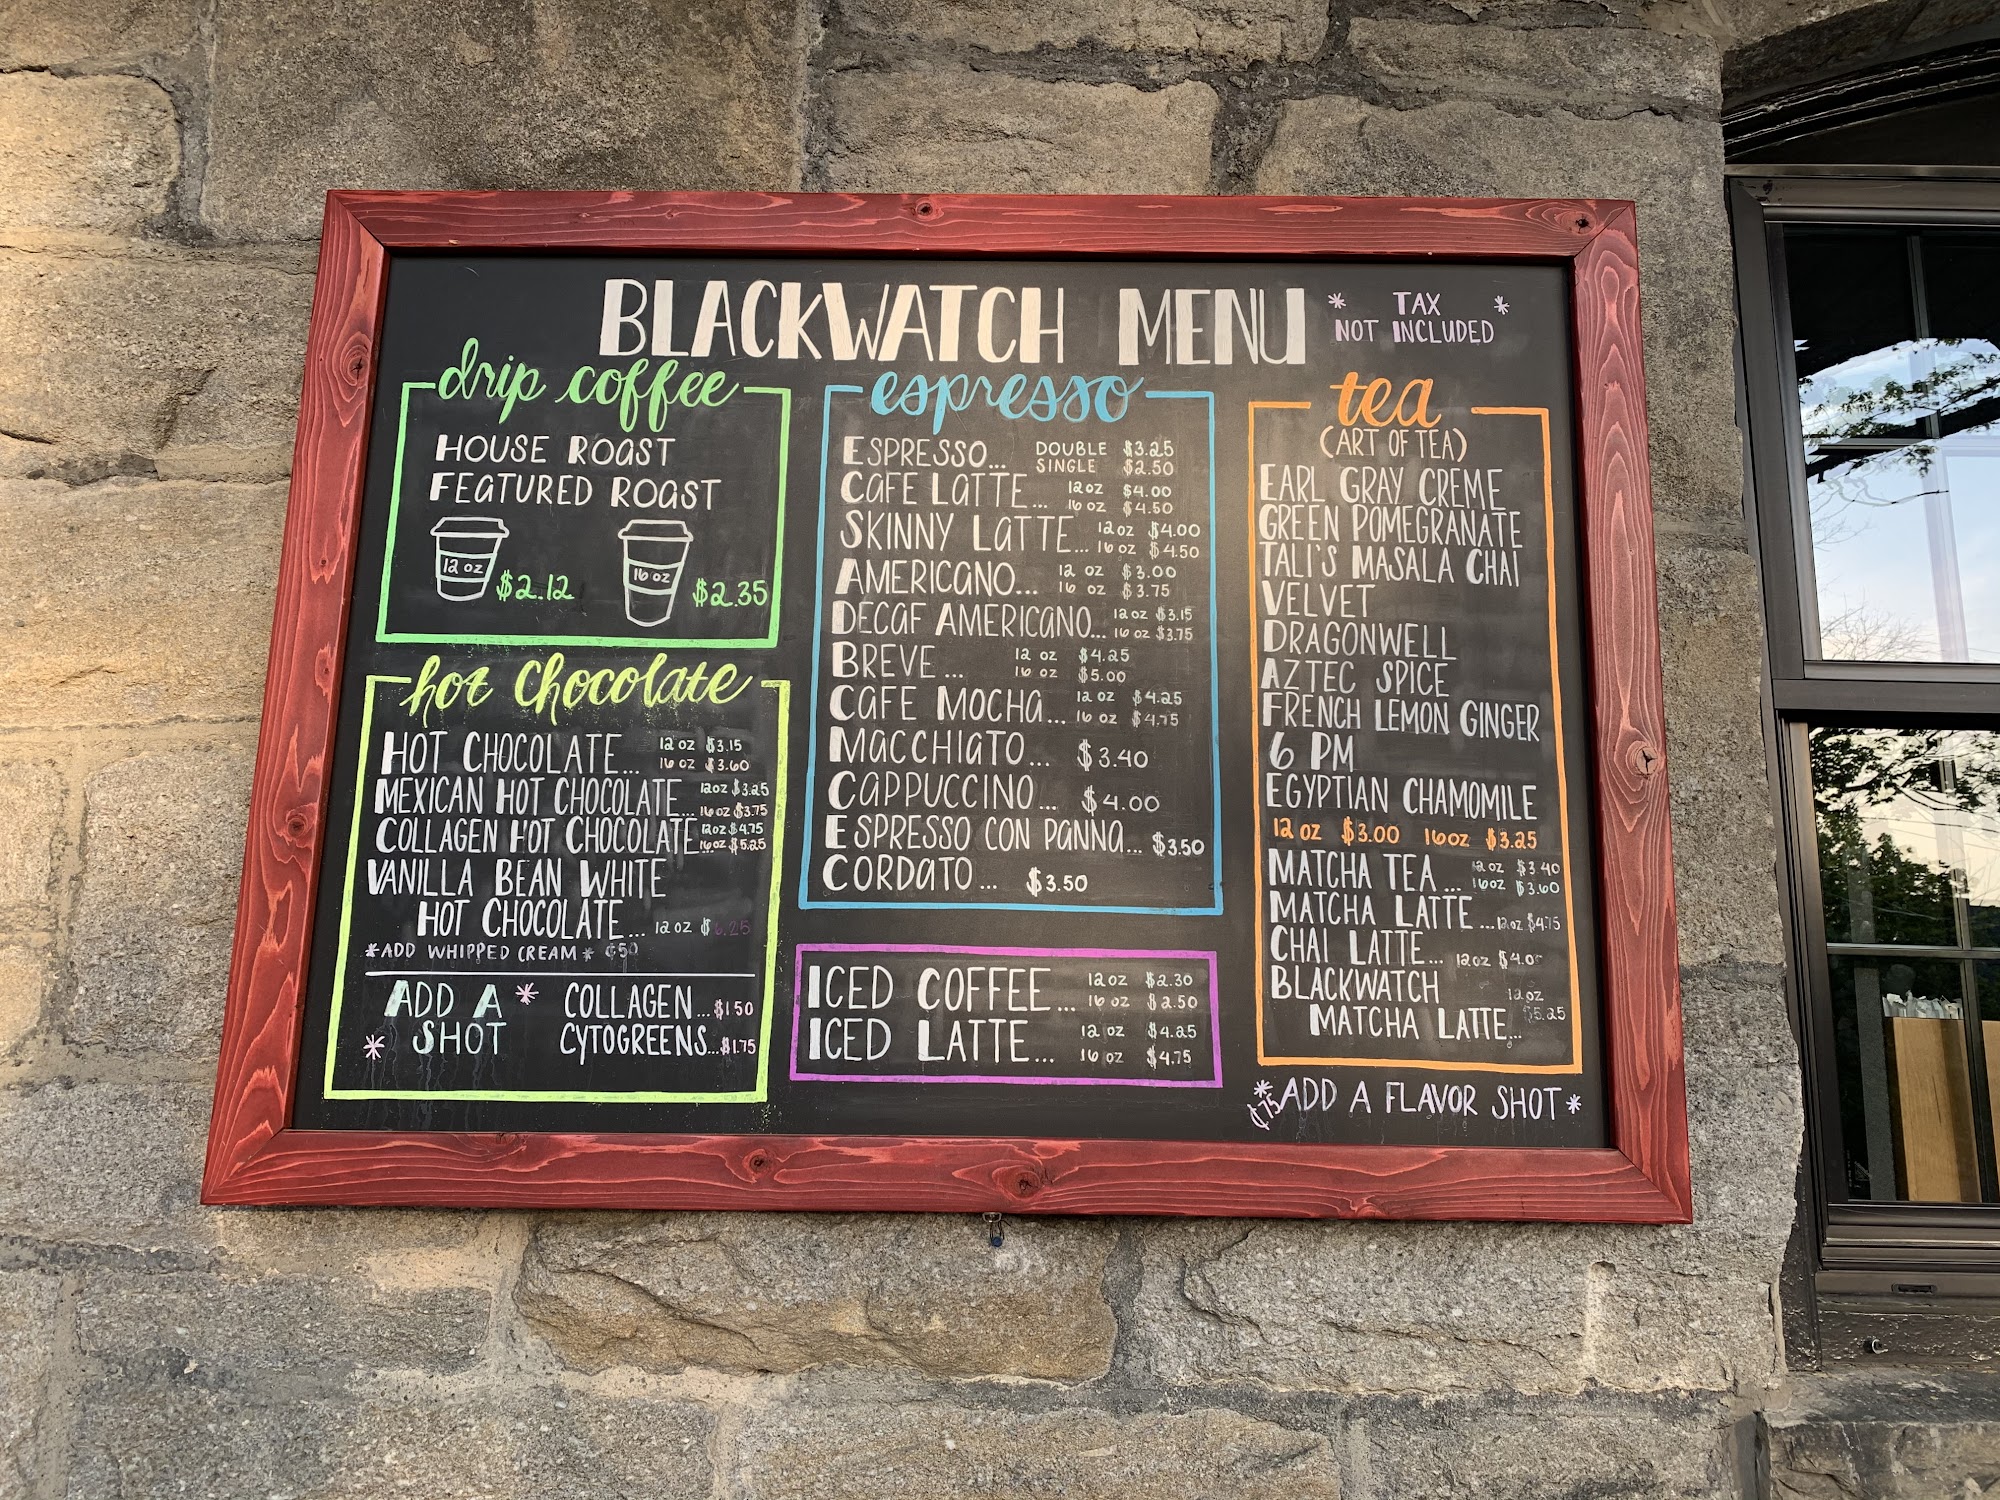 BLACKWATCH MENU
* TAX *
NOT INCLUDED
drip coffee
HOUSE ROAST
FEATURED ROAST
12 oz $2.12
16 oz $2.35
hot chocolate
HOT CHOCOLATE... 12 oz $3.15
16 oz $3.60
MEXICAN HOT CHOCOLATE... 12oz $3.25
16oz $3.75
COLLAGEN HOT CHOCOLATE... 12oz $4.75
16oz $5.25
VANILLA BEAN WHITE
HOT CHOCOLATE... 12 oz $6.25
*ADD WHIPPED CREAM* ¢50
ADD A *
* SHOT
COLLAGEN...$1.50
CYTOGREENS...$1.75
espresso
ESPRESSO... DOUBLE $3.25
SINGLE $2.50
CAFE LATTE... 12oz $4.00
16 oz $4.50
SKINNY LATTE... 12 oz $4.00
16 oz $4.50
AMERICANO... 12 oz $3.00
16 oz $3.75
DECAF AMERICANO... 12oz $3.15
16 oz $3.75
BREVE... 12 oz $4.25
16 oz $5.00
CAFE MOCHA... 12 oz $4.25
16 oz $4.75
MACCHIATO... $3.40
CAPPUCCINO... $4.00
ESPRESSO CON PANNA... $3.50
CORDATO... $3.50
ICED COFFEE... 12 oz $2.30
16 oz $2.50
ICED LATTE... 12 oz $4.25
16 oz $4.75
tea
(ART OF TEA)
EARL GRAY CREME
GREEN POMEGRANATE
TALI'S MASALA CHAI
VELVET
DRAGONWELL
AZTEC SPICE
FRENCH LEMON GINGER
6 PM
EGYPTIAN CHAMOMILE
12 oz $3.00 16oz $3.25
MATCHA TEA... 12oz $3.40
16oz $3.60
MATCHA LATTE...12oz $4.75
CHAI LATTE... 12oz
BLACKWATCH 12oz
MATCHA LATTE... $5.25
*ADD A FLAVOR SHOT*
¢75